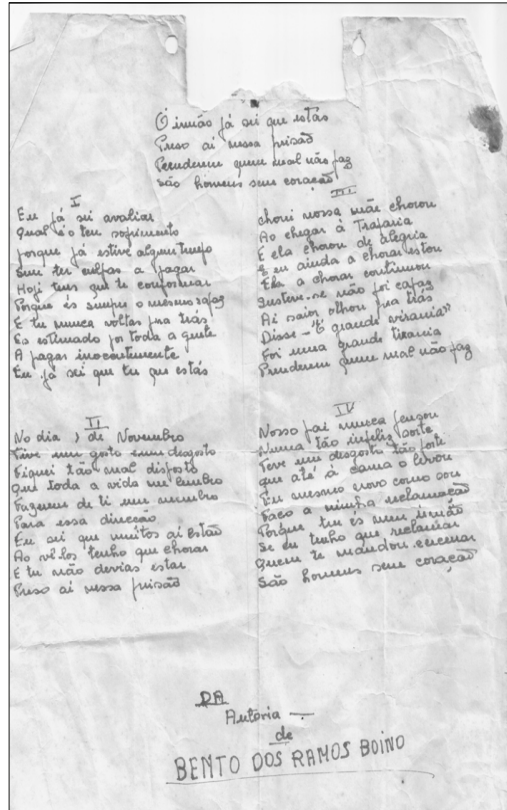 Ó irmão já sei que estás
Preso aí nessa prisão
Prenderem quem mal não faz
São homens sem coração
I
Eu já sei avaliar
Qual é o teu sofrimento
porque já estive algum tempo
Sem ter culpas a pagar
Hoje tens que te conformar
Porque és sempre o mesmo rapaz
E tu nunca voltas pra trás
És estimado por toda a gente
A pagar inocentemente
Eu já sei que tu que estás
II
No dia de Novembro
Tive um gosto e um desgosto
Fiquei tão mal disposto
Que toda a vida me lembro
Fazerem de ti um membro
Para essa direcção
Eu sei que muitos aí estão
Ao vê-los tenho que chorar
E tu não devias estar
Preso aí nessa prisão
III
chorei nossa mãe chorou
Ao chegar à Trafaria
E ela chorou de alegria
E eu ainda a chorar estou
Ela a chorar continuou
Susteve-se não foi capaz
Ai saiu olhou pra trás
Disse - "É grande
Foi uma grande tirania
Prenderem quem mal não faz
IV
Nosso pai nunca pensou
Numa tão infeliz sorte
Teve um desgosto tão forte
que até à cama o levou
Eu mesmo novo como sou
Faço a minha reclamação
Porque tu és meu irmão
Se eu tenho que reclamar
Quem te mandou encerrar
São homens sem coração
DA
Autoria —
de
BENTO DOS RAMOS BOINO